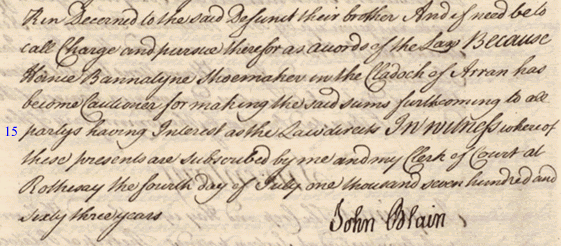 Kin Decerned to the said Defunct their brother And if need be to
call Charge and pursue therefor as accords of the Law Because
Bannatyne Shoemaker in the Cladoch of Arran has
become Cautioner for making the said sums furthcoming to all
15 partys having Interest as the Law directs In witness whereof
these presents are subscribed by me and my Clerk of Court at
Rothesay the fourth day of July one thousand seven hundred and
sixty three years
John Blain